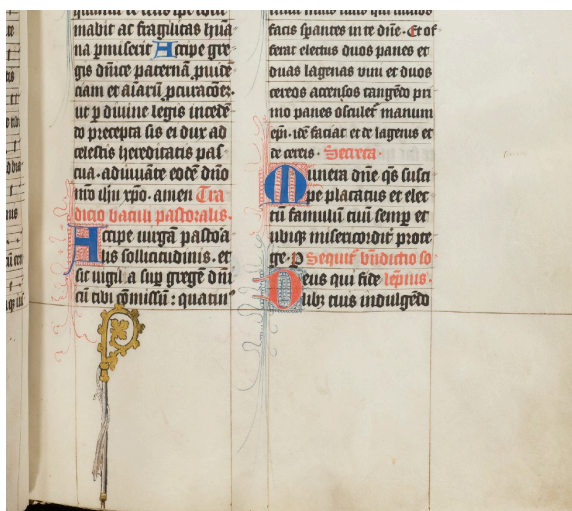 mabit ac fragilitas hūa
na pmiserit Accipe gre
gis dñice paternā puidē
ciam et aīarū pcuracōez.
ut p divine legis incedē
do precepta sis ei dux ad
celestis hereditatis pas
cua. adiuuāte eodē dño
nrō ihu xpo. amen Tra
dicio baculi pastoralis.
Accipe uirgā pastora
lis sollicitudinis. et
sic uigila sup gregē dñi
cū tibi cōmissū : quatin
facis sperantes in te dñe. Et of
ferat electus duos panes et
duas lagenas vini et duos
cereos accensos tangēdo pri
mo panes osculet manum
epi. idē faciat et de lagenis et
de cereis. Secreta.
Munera dñe qs susci
pe placatus et elec
tū famulū tuū semp et
ubiqz misericordit prote
ge. p Sequit bñdictio so
Deus qui fide lēpnis.
libz tuis indulgēdo